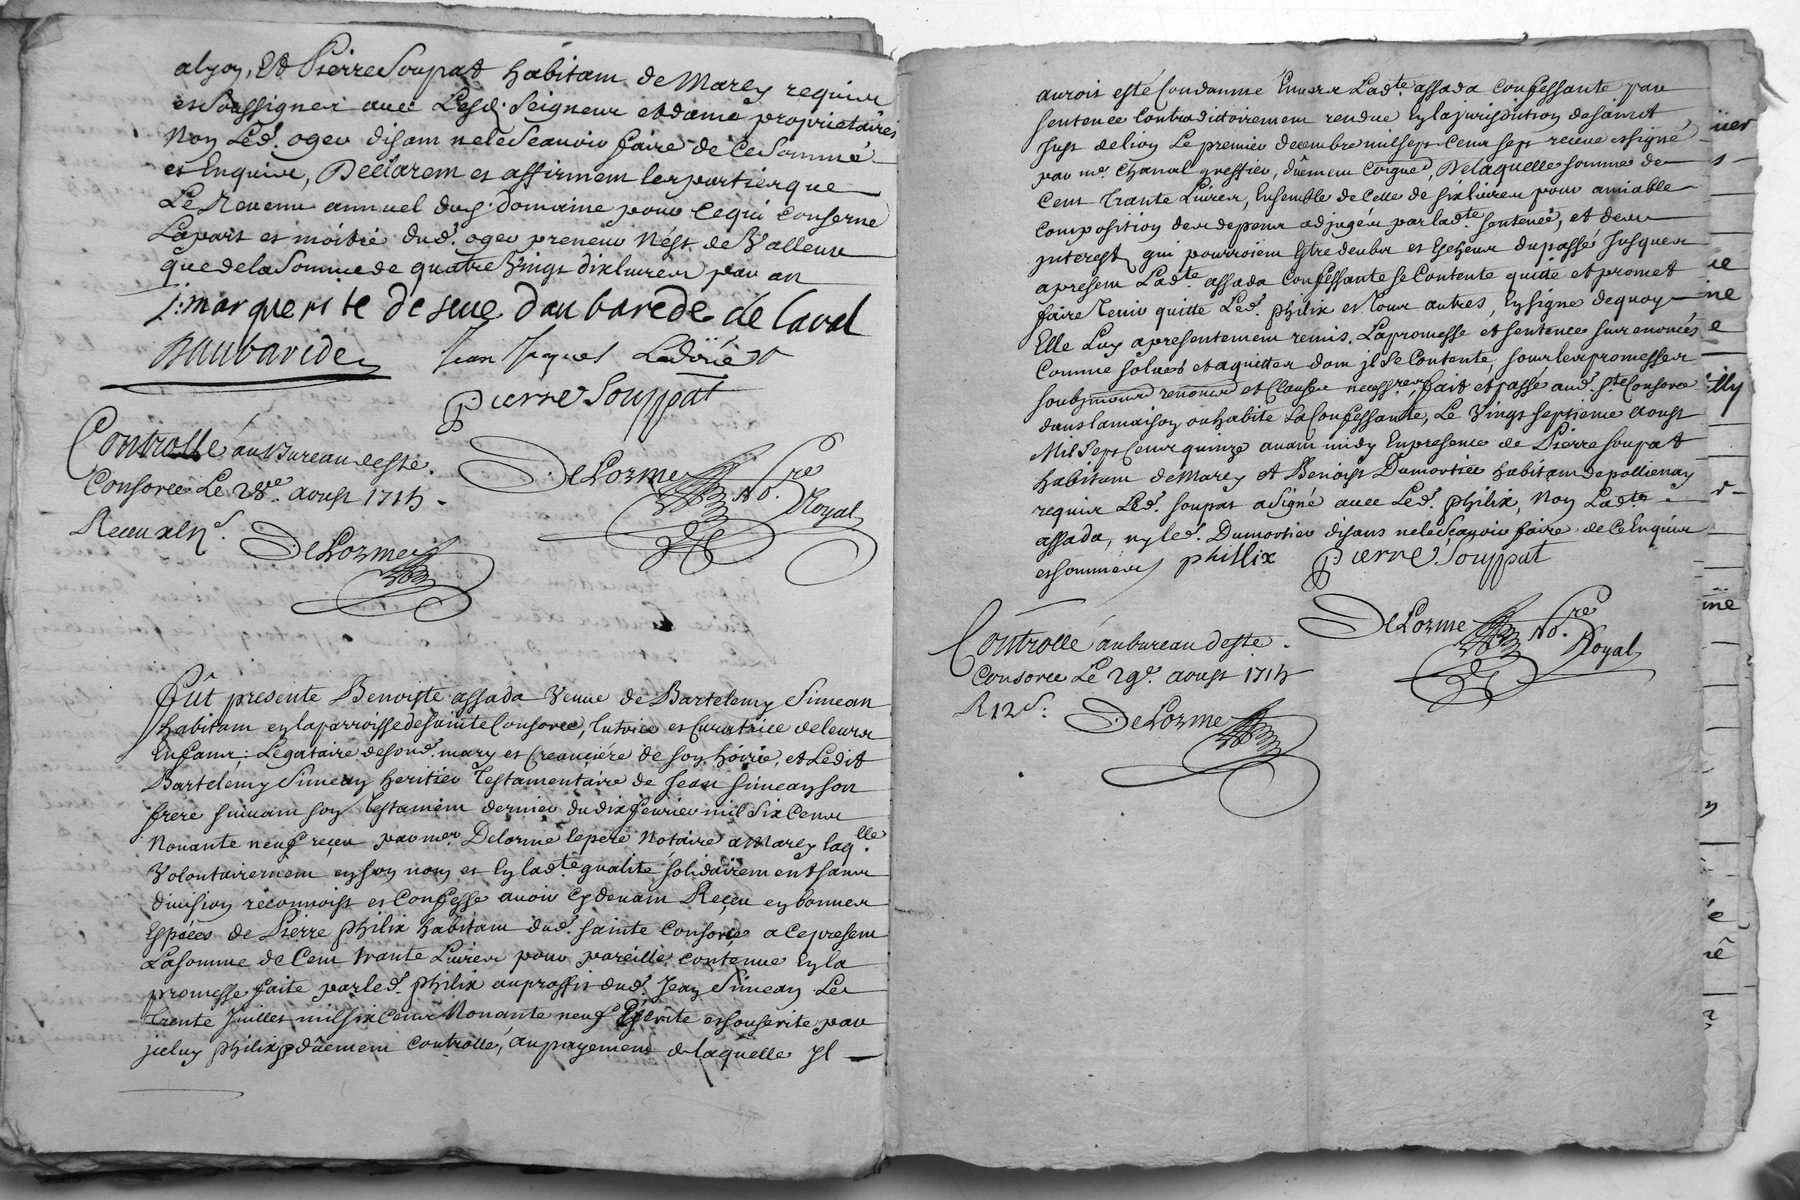 alyon, Et Pierre Soupat habitam de Marcy requis
et Soussigner avec Lesd. Seigneur et dame proprietaires
Non Led. oger disam ne le Scavoir faire de ce Sommé
et Enquis, Declarem et affirmem les parties que
Le Revenu annuel dud. domaine pour ce qui conserne
La part et moitié dud. oger preneur n'est de Valleur
que de la Somme de quatre Vings dix livres par an
J. marguerite de seve daubarede de laval
Daubarede
Jean Jaques
Pierre Souppat
Controllé au Bureau de Ste.
Consorce Le 28e. aoust 1715.
Receu
DeLorme No.re Royal
DeLorme
Fût presente Benoiste assada Veuve de Bartelemy Simean
habitam en la parroisse de Sainte Consorce, tutrice et Curatrice de leurs
Enfans; Legataire de Sond. mary et Creanciére de son hoirie, et Ledit
Bartelemy Simean heritier Testamentaire de Jean Simean son
frere suivam son Testamem dernier du dix fevrier mil Six Cens
Nonante neuf reçeu par me. Delorme le pere Notaire a Marcy laq.lle
Volontairemem en son nom et en lad.te qualité, solidairement sans
division reconnoist et Confesse avoir cy devam Reçeu en bonnes
Espéces de Pierre philix habitam dud. Sainte Consorce a ce presem
La Somme de Cem trante Livres pour pareille contenue en la
promesse faite par led. philix au proffit dud. Jean Simean Le
trente Juillet mil six Cens Nonante neuf Escrite et souscrite par
jceluy philix dûemem controllé, au payemem de laquelle Jl
auroit esté Condamné Envers Lad.te assada confessante par
Sentence Contradictoirement rendue En la jurisdition de Saint
Just de lion Le premier decembre mil sept Cens sept receue et signé
par me. Chanal greffier, dûemem , De laquelle somme de
Cem trante Livres, Ensemble de Celle de six livres pour amiable
composition des depens adjugés par lad.te Sentence, et des
jnterest qui pourroiem Estre deubs et Escheus du passé Jusques
a presem Lad.te assada Confessante se Contente quitte et promet
faire tenir quitte Led. philix et tous autres, En signe de quoy
Elle Luy a presentement remis La promesse et sentence sus enoncés
Comme solues et aquittés dom jl se Contente, sous les promesses
soubmissions renonces et Clauses necess.res, fait et passé aud. S.te Consorce
dans la maison ou habite La Confessante, Le Vingt septieme aoust
Mil Sept Cens quinze avam midy En presence de Pierre Soupat
habitam de Marcy et Benoist Dumortier habitam de pollienay
requis Led. Soupat a Signé avec Led. philix, Non Lad.te
assada, ny led. Dumortier disans ne le Sçavoir faire de ce Enquis
et sommés
phillix
Pierre Souppat
DeLorme No.re Royal
Controllé au bureau de Ste.
Consorce Le 29e. aoust 1715
R 12 s.
DeLorme